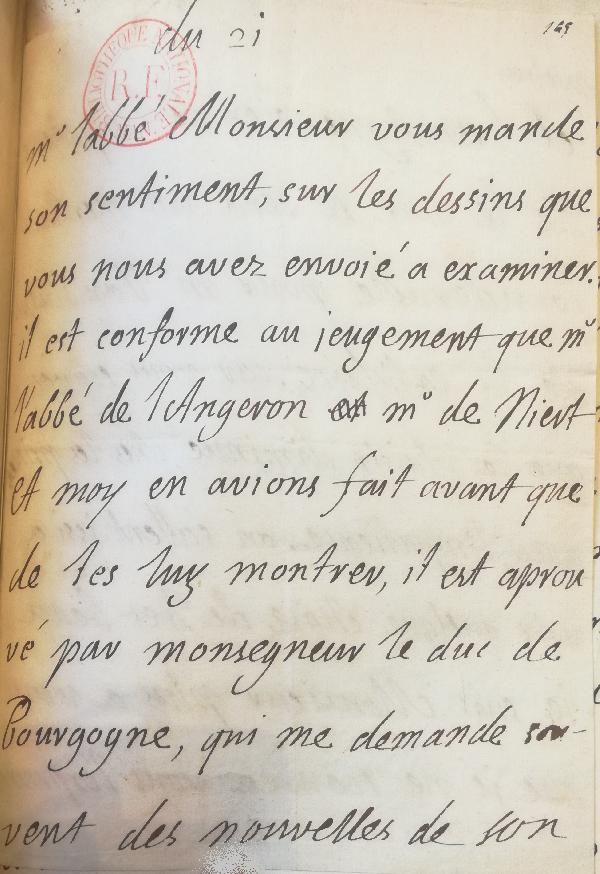 du 21
169
BIBLIOTHEQUE NATIONALE
R.F.
mr l'abbé Monsieur vous mande
son sentiment, sur les dessins que
vous nous avez envoié a examiner.
il est conforme au jeugement que mr
l'abbé de lAngeron mr de Niert
et moy en avions fait avant que
de les luy montrer, il est aprou
vé par monsegneur le duc de
Bourgogne, qui me demande sou-
vent des nouvelles de son